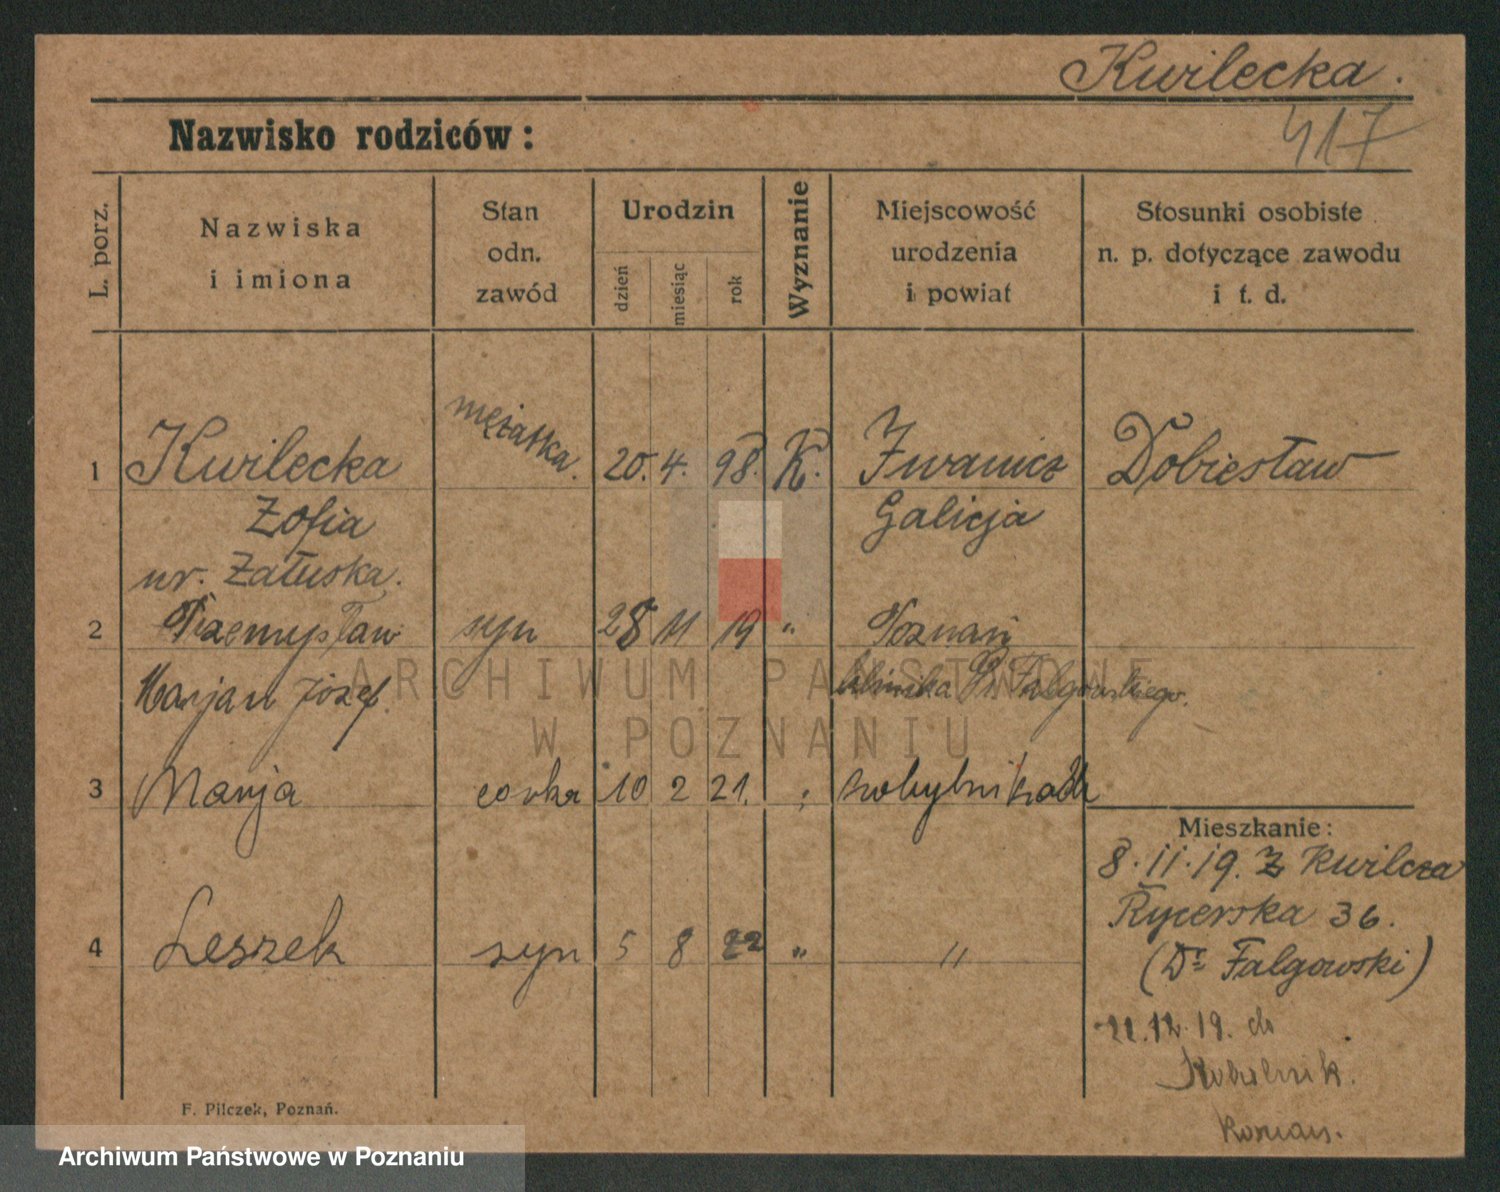 Kwilecka.
417
Nazwisko rodziców:
L. porz.
Nazwiska
i imiona
Stan
odn.
zawód
Urodzin
dzień
miesiąc
rok
Wyznanie
Miejscowość
urodzenia
i powiat
Stosunki osobiste
n. p. dotyczące zawodu
i t. d.
1 Kwilecka mężatka. 20. 4. 98. K. Iwanicz Dobiesław
Zofia Galicja
ur. Załuska.
2 Przemysław syn 28 11 19 " Poznań
Marjan Józef. klinika Dr. Falgowskiego.
3 Marja córka 10 2 21. "
4 Leszek syn 5 8 22 " "
Mieszkanie:
8.11.19. Z Kwilcza
Rycerska 36.
(Dr Falgowski)
12.19. do
Kobelnik.
Kościan.
F. Pilczek, Poznań.
ARCHIWUM PAŃSTWOWE
W POZNANIU
Archiwum Państwowe w Poznaniu